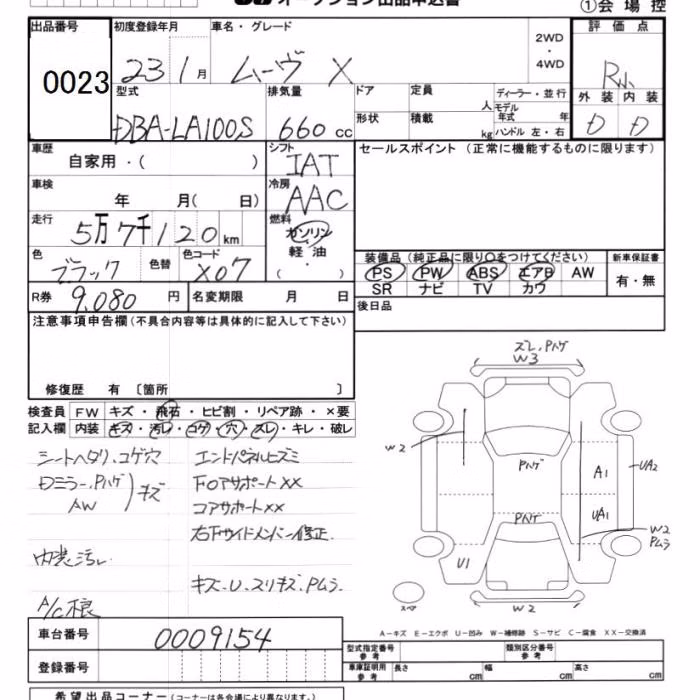 オークション出品申込書
①会場控
出品番号 初度登録年月 車名・グレード 2WD ・ 4WD 評価点
0023 23 1月 ムーヴ X R小
型式 排気量 ドア 定員 人 ディーラー・並行 外装 内装
DBA-LA100S 660cc 形状 積載 kg モデル年式 年 ハンドル 左・右 D D
車歴 自家用・( ) シフト IAT セールスポイント(正常に機能するものに限ります)
車検 年 月( 日) 冷房 AAC
走行 5万7千120km 燃料 ガソリン 軽油 ( ・ )
色 ブラック 色替 色コード X07
装備品(純正品に限り○をつけてください) 新車保証書
PS PW ABS エアB AW 有・無
SR ナビ TV カワ
R券 9,080円 名変期限 月 日 後日品
注意事項申告欄(不具合内容等は具体的に記入して下さい)
修復歴 有 〔箇所 〕
検査員 FW キズ・飛石・ヒビ割・リペア跡・×要
記入欄 内装 キズ・汚レ・コゲ・穴・スレ・キレ・破レ
シートヘタリ、コゲ穴
Dミラー、Pハゲ
AW
キズ
内装汚レ
A/C根
エンドパネルヒズミ
FOアサポートXX
コアサポートXX
右下サイドメンバー修正
キズ、U、スリキズ、Pムラ
ズレ、Pハゲ
W3
W2
Pハゲ
A1
UA2
Pハゲ
UA1
W2
Pムラ
U1
スペア
W2
A－キズ E－エクボ U－凹み W－補修跡 S－サビ C－腐食 XX－交換済
車台番号 0009154
型式指定番号 参考 類別区分番号 参考
登録番号
車庫証明用 参考 長さ cm 幅 cm 高さ cm
希望出品コーナー(コーナーは各会場により異なります。)